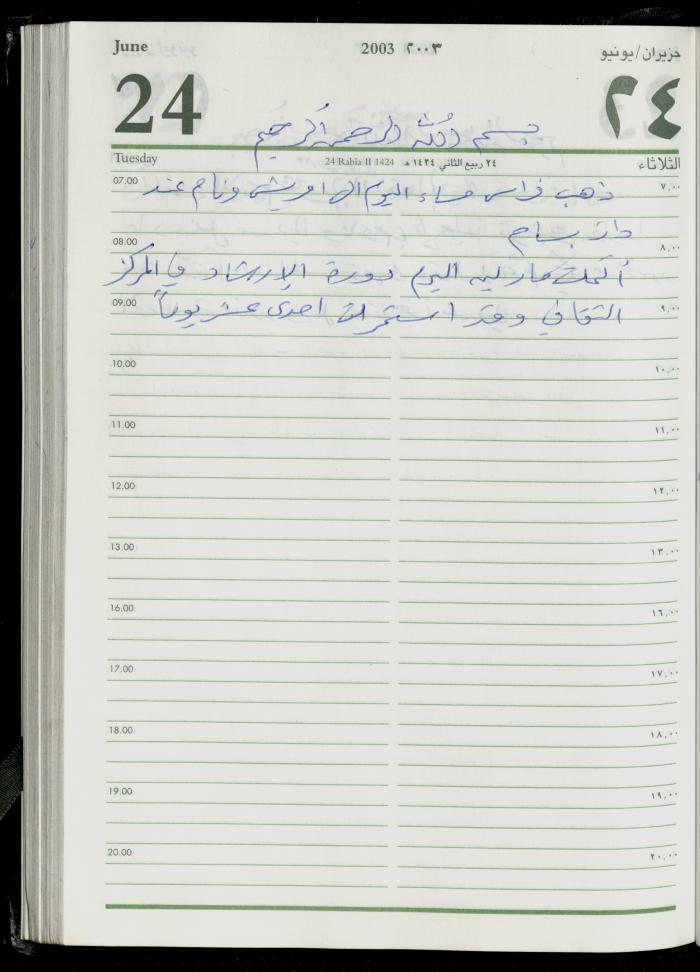 June 2003 ٢٠٠٣ حزيران/يونيو
24 ٢٤
بسم الله الرحمن الرحيم
Tuesday 24 Rabia II 1424 ٢٤ ربيع الثاني ١٤٢٤ هـ الثلاثاء
07.00 ٧,٠٠
ذهب فراس مساء اليوم الى اوريش ونام عند
دار بسام
08.00 ٨,٠٠
أكملت مارلين اليوم دورة الإرشاد في المركز
09.00 ٩,٠٠
الثقافي وقد استمرت احدى عشر يوماً
10.00 ١٠,٠٠
11.00 ١١,٠٠
12.00 ١٢,٠٠
13.00 ١٣,٠٠
16.00 ١٦,٠٠
17.00 ١٧,٠٠
18.00 ١٨,٠٠
19.00 ١٩,٠٠
20.00 ٢٠,٠٠